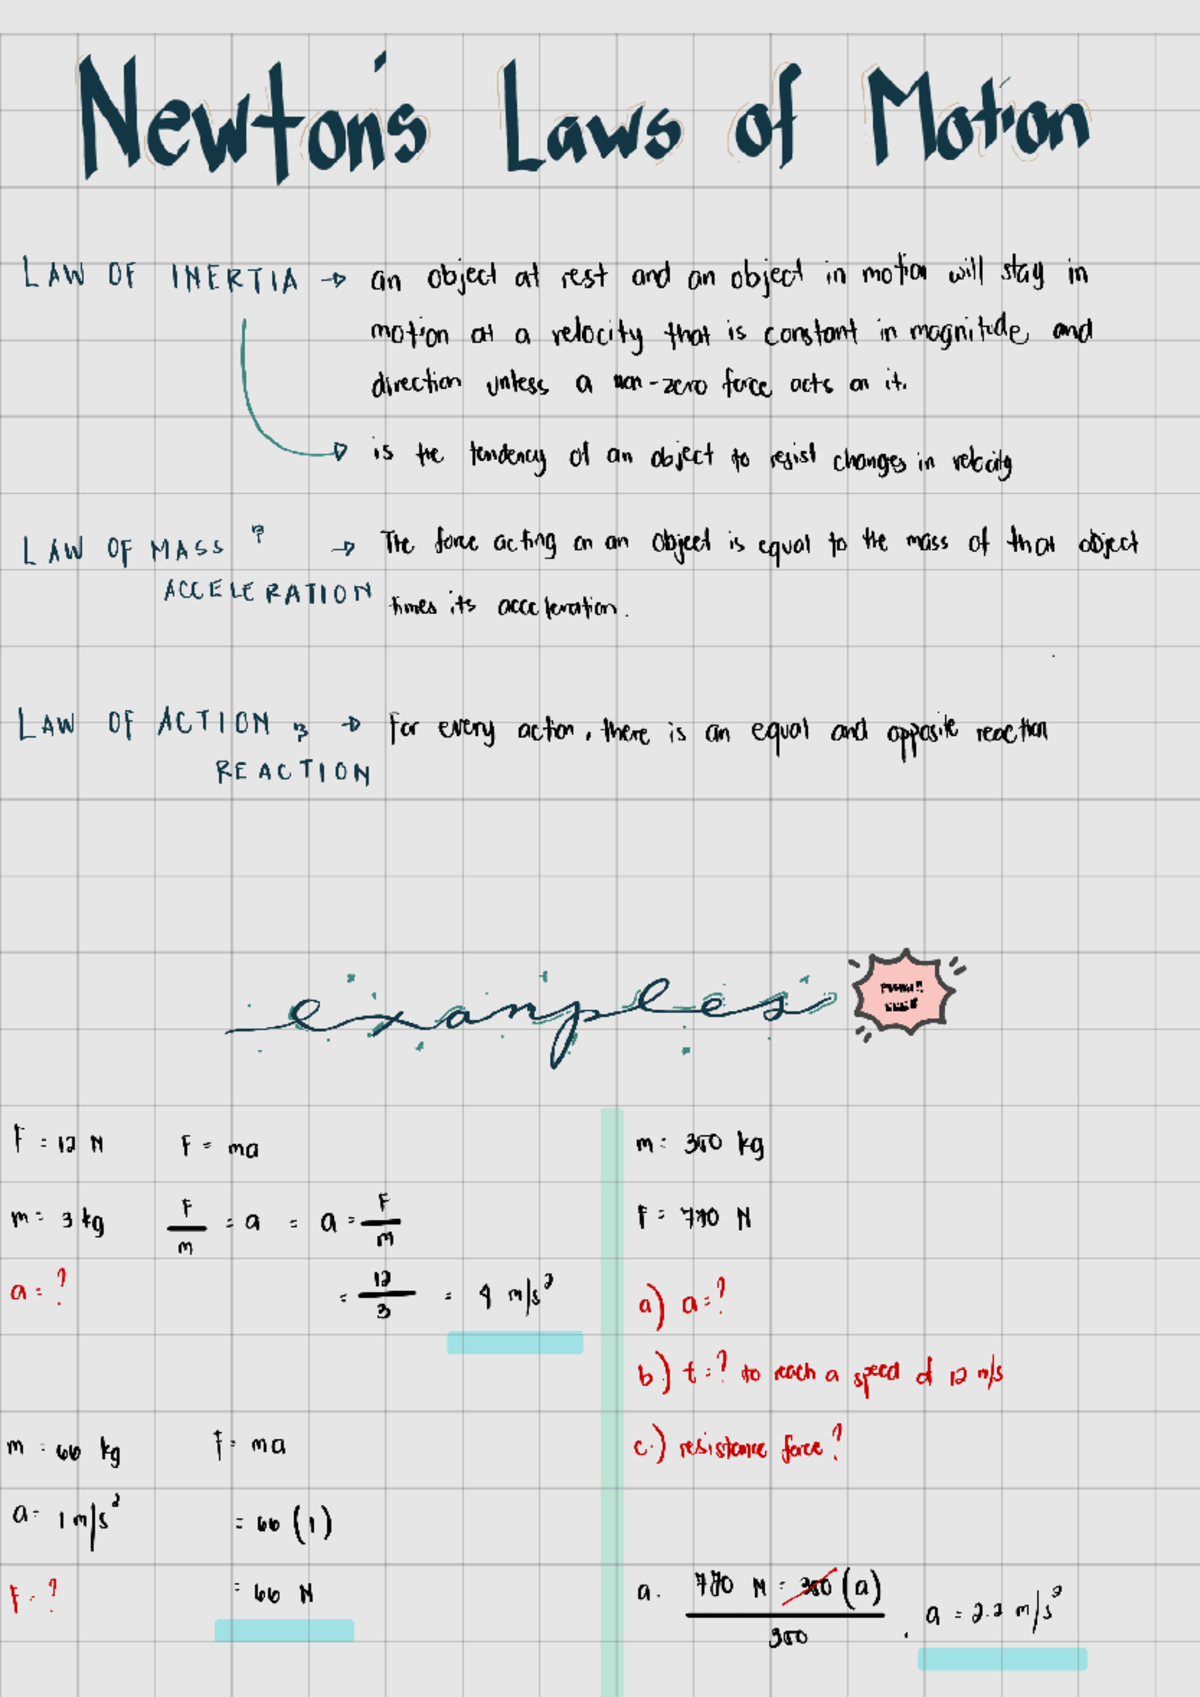 Newton's Laws of Motion
LAW OF INERTIA → an object at rest and an object in motion will stay in
motion at a velocity that is constant in magnitude and
direction unless a non-zero force acts on it.
is the tendency of an object to resist changes in velocity
LAW OF MASS & → The force acting on an object is equal to the mass of that object
ACCELERATION times its acceleration.
LAW OF ACTION & → For every action, there is an equal and opposite reaction
REACTION
examples
F = 12 N F = ma
m = 3 kg F/m = a = a = F/m
a = ?
= 12/3 = 4 m/s²
m = 66 kg F = ma
a = 1 m/s² = 66 (1)
F = ? = 66 N
m = 350 kg
F = 770 N
a) a = ?
b.) t = ? to reach a speed of 12 m/s
c.) resistance force?
a. 770 N = 350 (a)
350
a = 2.2 m/s²